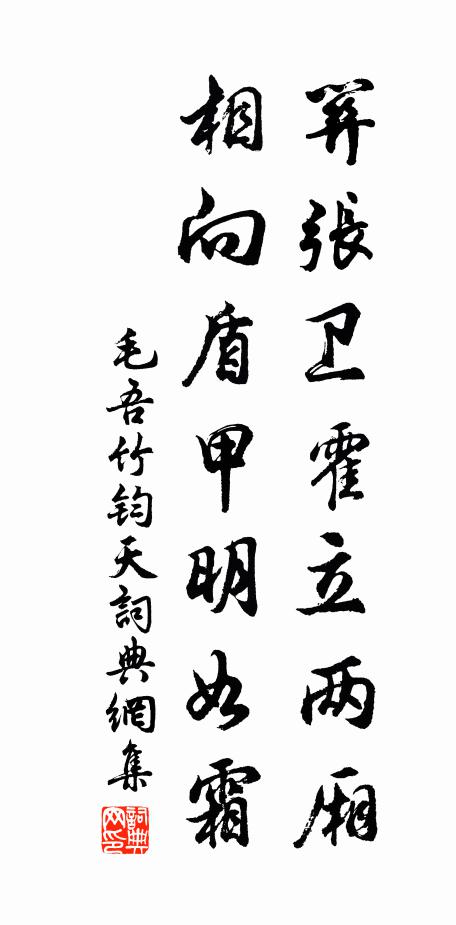 羿張卫霍立两厢
相向盾甲明如霜
毛吾竹钧天詞典網集
詞典网印